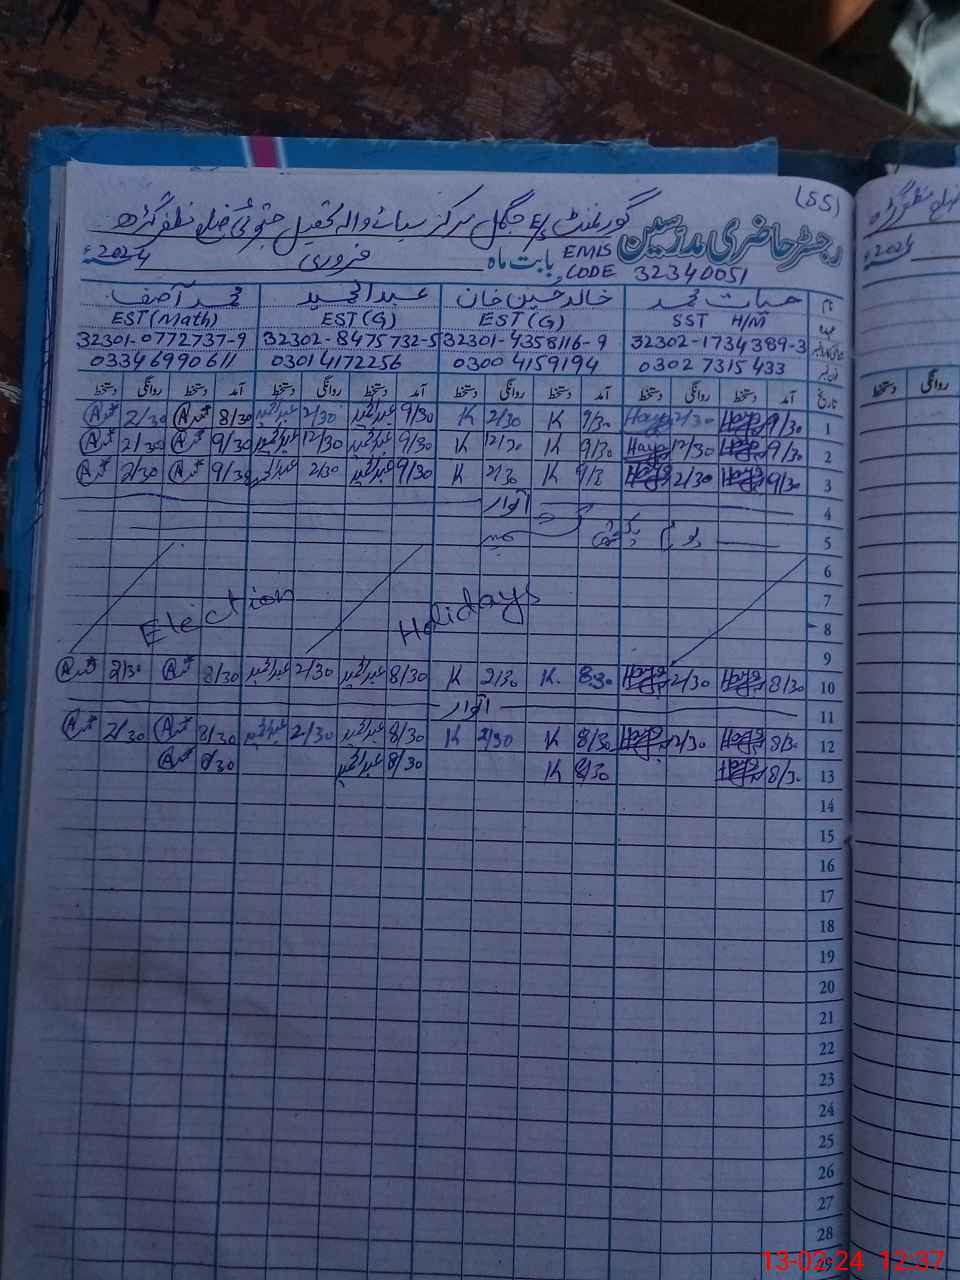 (55)
رجسٹر حاضری مدرسین گورنمنٹ E/S جنگل مرکز سبائے والا تحصیل جتوئی ضلع مظفر گڑھ
بابت ماہ فروری 2024ء
EMIS CODE 32340051
نام حیات محمد خالد حسین خان عبدالمجید محمد آصف
عہدہ SST H/M EST(G) EST(G) EST(Math)
32302-1734389-3 32301-4358116-9 32302-8475732-5 32301-0772737-9
0302 7315 433 0300 4159194 0301 4172256 0334 6990611
تاریخ آمد دستخط روانگی دستخط آمد دستخط روانگی دستخط آمد دستخط روانگی دستخط آمد دستخط روانگی دستخط
1 9/30 Haya 2/30 Haya 9/30 K 2/30 K 9/30 عبدالمجید 2/30 عبدالمجید 8/30 2/30
2 9/30 Haya 12/30 Haya 9/30 K 12/30 K 9/30 عبدالمجید 12/30 عبدالمجید 9/30 2/30
3 9/30 Haya 2/30 Haya K 2/30 K 9/30 عبدالمجید 2/30 عبدالمجید 9/30 2/30
4 اتوار
5
6
7
8
Election Holidays
9
10 8/30 Haya 2/30 Haya 8:30 K. 2/30 K 8/30 عبدالمجید 2/30 عبدالمجید 8/30 2/30
11 اتوار
12 8/30 Haya 2/30 Haya 8/30 K 2/30 K 8/30 عبدالمجید 2/30 عبدالمجید 8/30 2/30
13 8/30 Haya 8/30 K 8/30 عبدالمجید 8/30
14
15
16
17
18
19
20
21
22
23
24
25
26
27
28
29
2024ء
روانگی دستخط
13-02-24 12:37